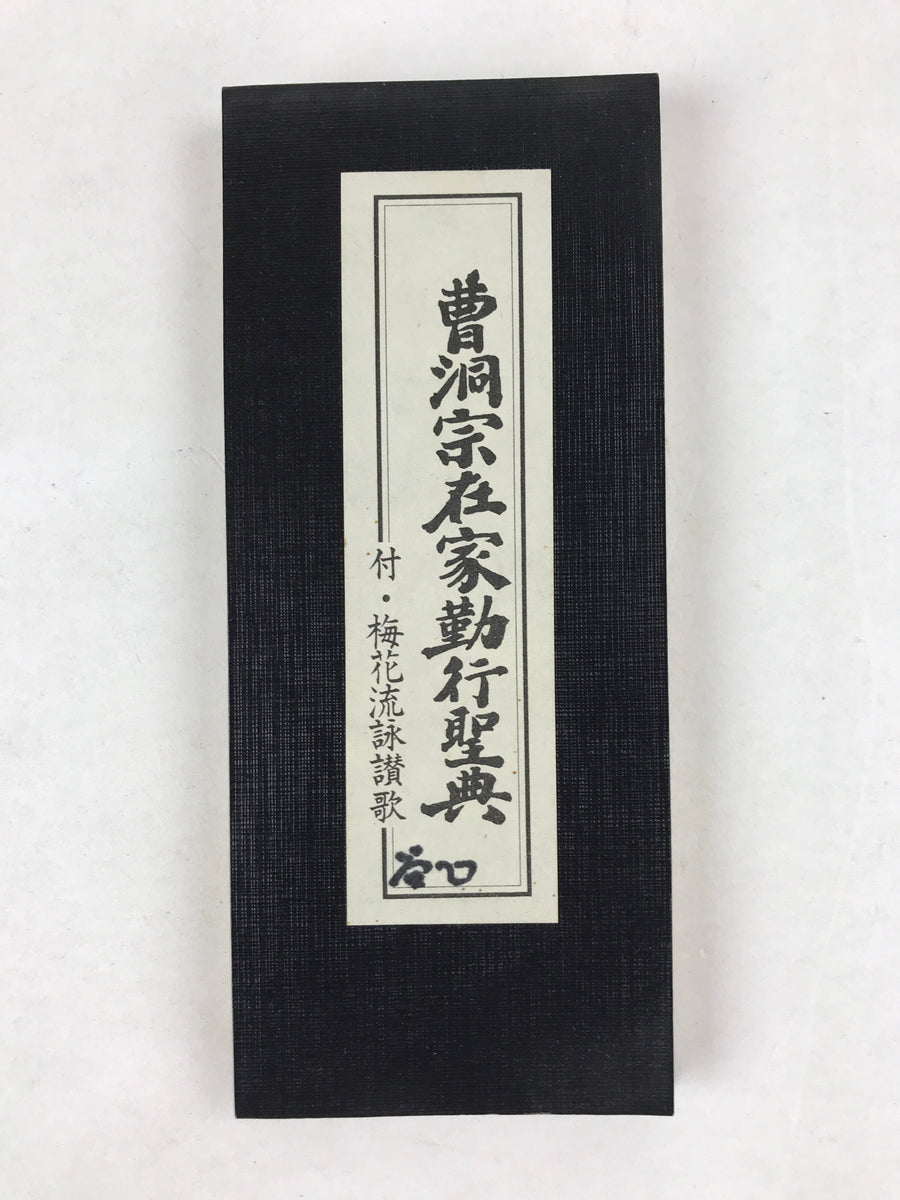 曹洞宗在家勤行聖典
付・梅花流詠讃歌
谷口